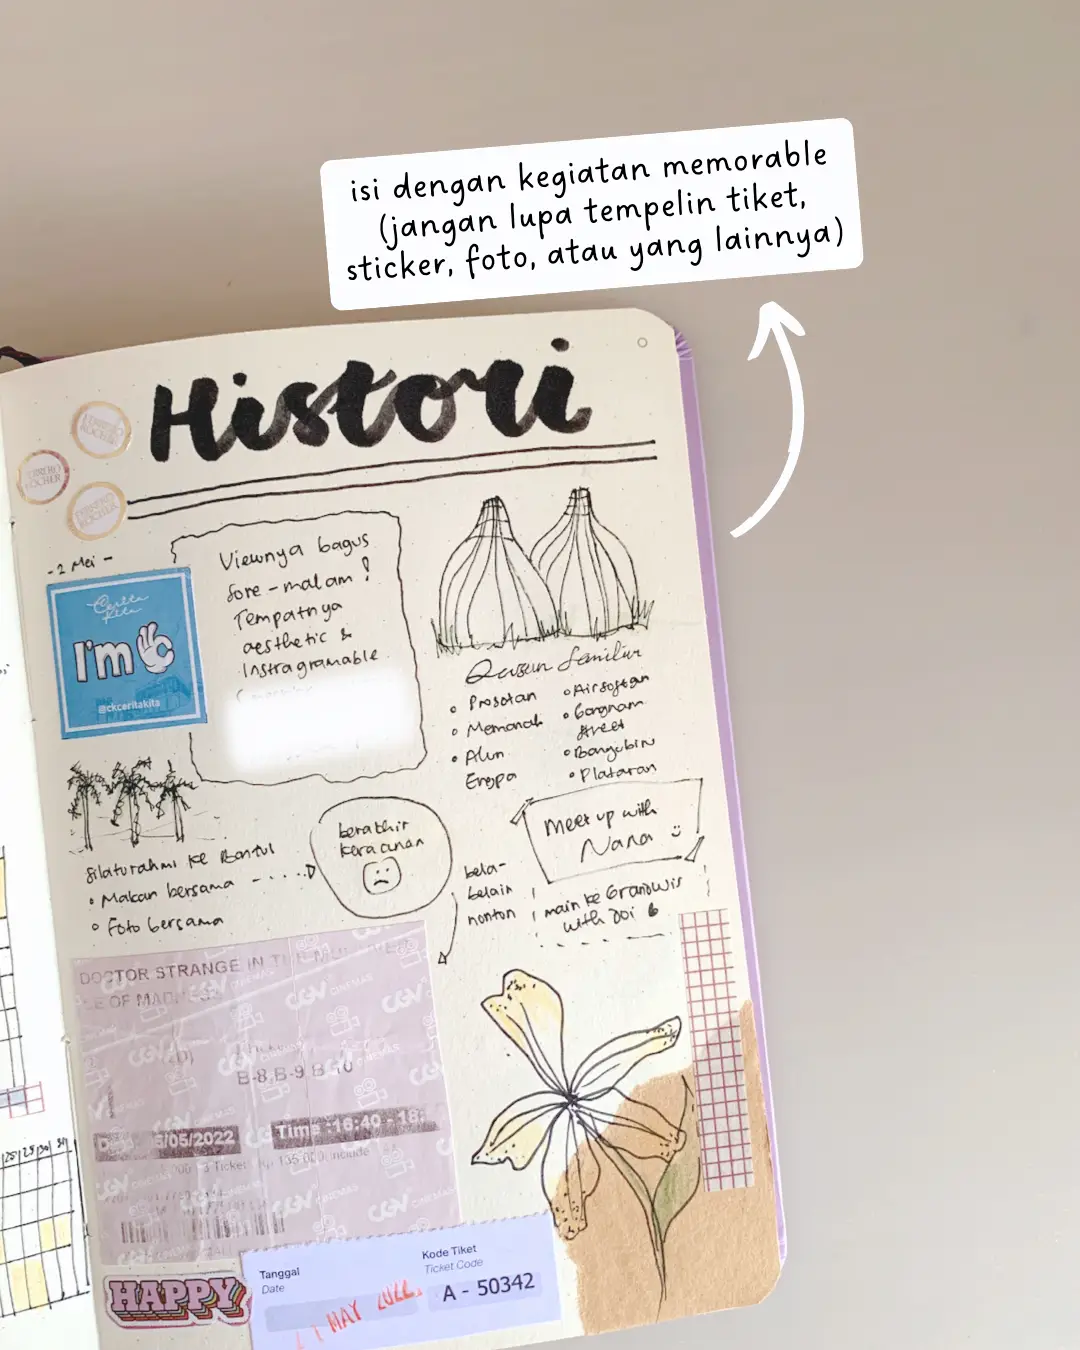 isi dengan kegiatan memorable
(jangan lupa tempelin tiket,
sticker, foto, atau yang lainnya)
Histori
FERRERO
ROCHER
FERRERO
ROCHER
FERRERO
ROCHER
- 2 Mei -
Cerita
Kita
I'm
@ckceritakita
Viewnya bagus
sore - malam !
Tempatnya
aesthetic &
Instragramable
Dusun Semilir
Prosotan
Memanah
Alun
Eropa
Airsoftgun
Gangnam
street
Plataran
Silaturahmi ke Bantul
Makan bersama
Foto bersama
berakhir
keracunan
Meet up with
Nana
bela-
belain
nonton
main ke Grandwis
with doi
DOCTOR STRANGE IN
OF MADNESS
CGV CINEMAS
B-8,B-9,B-10
5/05/2022
Time -16:40 - 18:
3 Ticket
135.000 include
HAPPY
Tanggal
Date
MAY 2022
Kode Tiket
Ticket Code
A - 50342
25 | 29 | 30 | 31